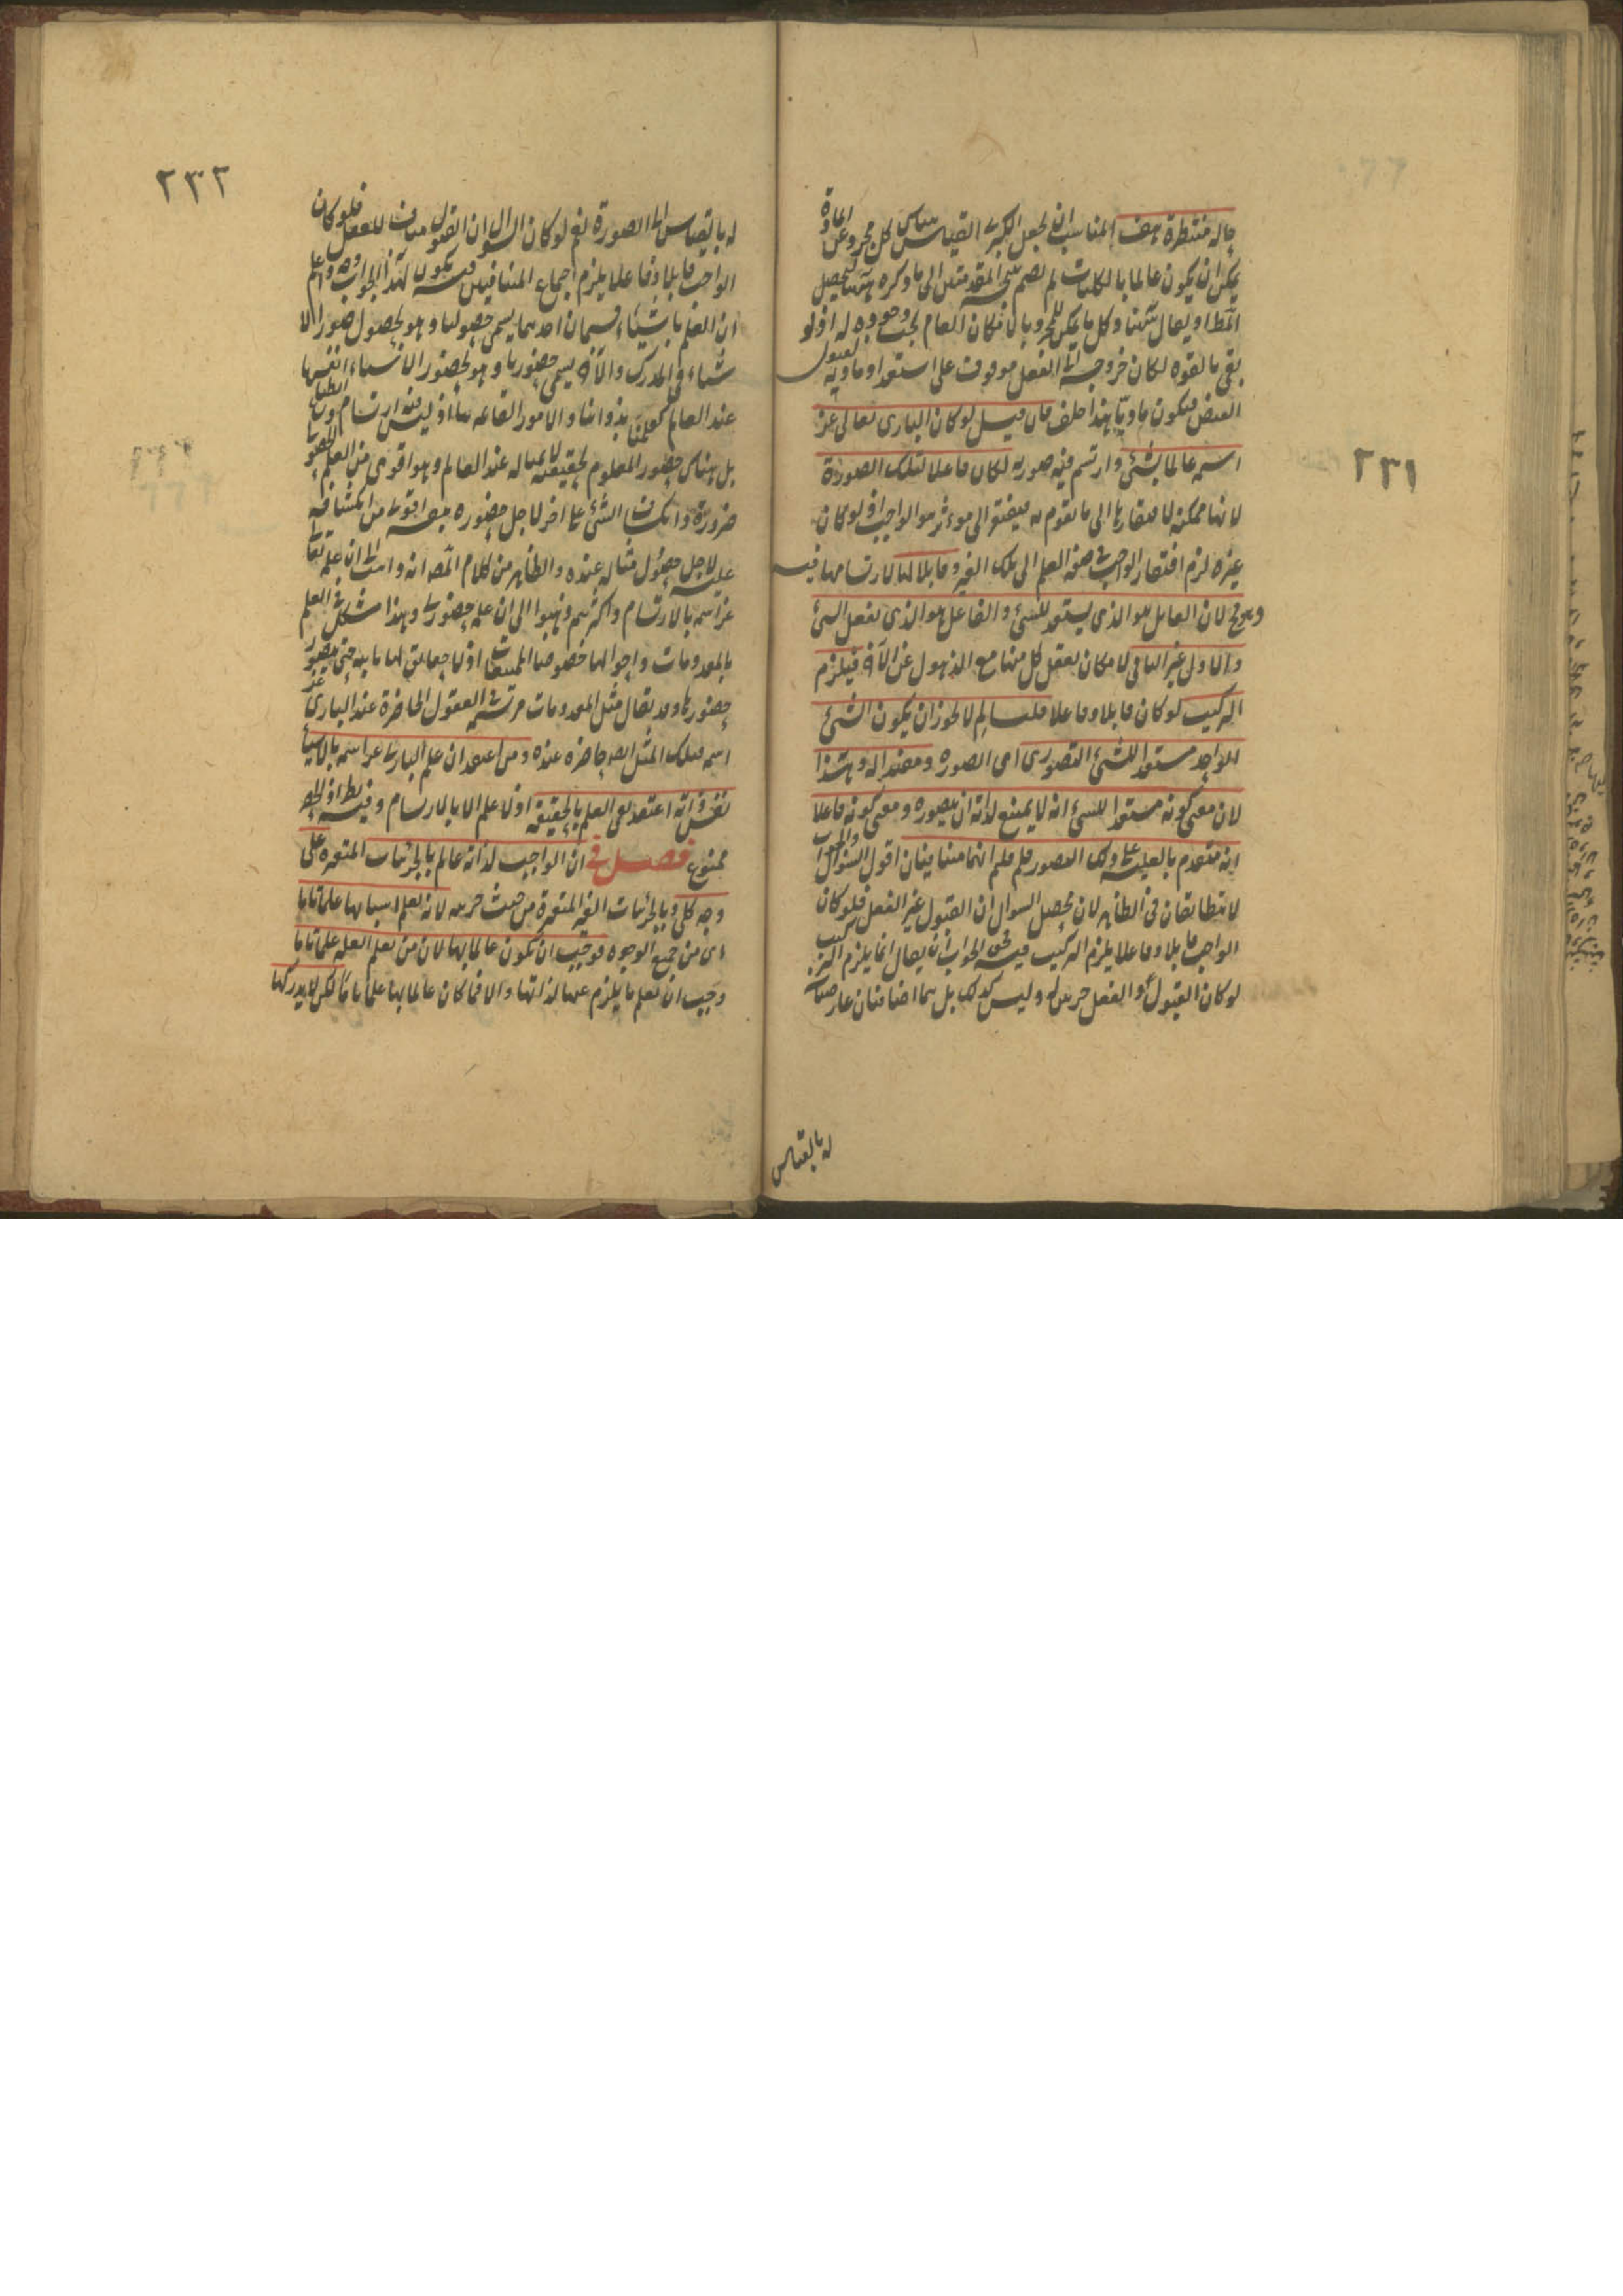 ٢٣١
حاله منتظرة هف المناسب ان يجعل الكبرى القياس هناك كل مجرد عن المادة
يمكن ان يكون عالما بالكليات ثم يضم نتيجة المقدمتين الى ما ذكره ههنا ليحصل
المط او يقال ههنا وكل ما يمكن للمجرد بالامكان العام يجب وجوده له اذ لو
بقى بالقوه لكان خروجه الى الفعل موقوف على استعداد مادته لقبول
الفيض فيكون ماديا هذا خلف فان قيل لو كان البارى تعالى عز
اسمه عالما بشئ وارتسم فيه صورته لكان فاعلا لتلك الصورة
لانها ممكنة لافتقارها الى ما تقوم به فيفتقر الى موءثر هو الواجب اذ لو كان
غيره لزم افتقار الواجب فى صفة العلم الى تلك الغير وقابلا لها لارتسامها فيه
وهو مح لان القابل هو الذى يستعد للشئ والفاعل هو الذى يفعل الشئ
والاول غير الثانى لامكان تعقل كل منهما مع الذهول عن الآخر فيلزم
التركيب لو كان قابلا وفاعلا قلنا لم لا يجوز ان يكون الشئ
الواحد مستعدا للشئ التصورى اى الصوره ومفيدا له وهذا
لان معنى كونه مستعدا للشئ انه لا يمتنع لذاته ان يتصوره ومعنى كونه فاعلا
انه متقدم بالعلية على ذلك التصور فلم قلتم انهما متنافيان اقول السؤال والجواب
لا يتطابقان فى الظاهر لان محصل السوال ان القبول غير الفعل فلو كان
الواجب قابلا وفاعلا يلزم التركيب فيه فحق الجواب ان يقال انما يلزم التركيب
لو كان القبول والفعل جزئين له وليس كذلك بل هما اضافتان عارضتان
له بالقياس
٢٣٢
له بالقياس الى الصورة نعم لو كان السوال ان القبول مناف للفعل فلو كان
الواجب قابلا وفاعلا يلزم اجتماع المتنافيين فيه يكون لهذا الجواب وجه واعلم
ان العلم بالاشياء قسمان احدهما يسمى حصوليا وهو بحصول صور الا
شياء فى المدرك والآخر يسمى حضوريا وهو بحضور الاشياء انفسها
عند العالم كعلمنا بذواتنا والامور القائمه بها اذ ليس فيه ارتسام وانطباع
بل هناك حضور المعلوم بحقيقته لا بمثاله عند العالم وهو اقوى من العلم الحصولى
ضرورة وانكشاف الشئ على آخر لاجل حضوره بنفسه اقوى من انكشافه
عليه لاجل حصول مثاله عنده والظاهر من كلام المص انه ذاهب الى ان علمه تعالى
عز اسمه بالارتسام واكثرهم ذهبوا الى ان علمه حضورى وهذا مشكل فى العلم
بالمعدومات واحوالها خصوصا الممتنعات اذ لا حقايق لها ثابته حتى يتصور
حضورها وقد يقال مثل المعدومات مرتسمه فى العقول الحاضرة عند البارى عز
اسمه فتلك المثل ايضا حاضره عنده ومن اعتقد ان علم البارى عز اسمه بالاشياء
نفس ذاته اعتقد نفى العلم بالحقيقة اذ لا علم الا بالارتسام وفيه نظر اذ الحصر
ممنوع فصل فى ان الواجب لذاته عالم بالجزئيات المتغيره على
وجه كلى وبالجزئيات الغير المتغيرة من حيث جزئيه لانه يعلم اسبابها علما تاما
اى من جميع الوجوه فوجب ان يكون عالما بها لان من يعلم العله علما تاما
وجب ان يعلم ما يلزم عنها لذاتها والا فما كان عالما بها علما تاما لكن لا يدركها